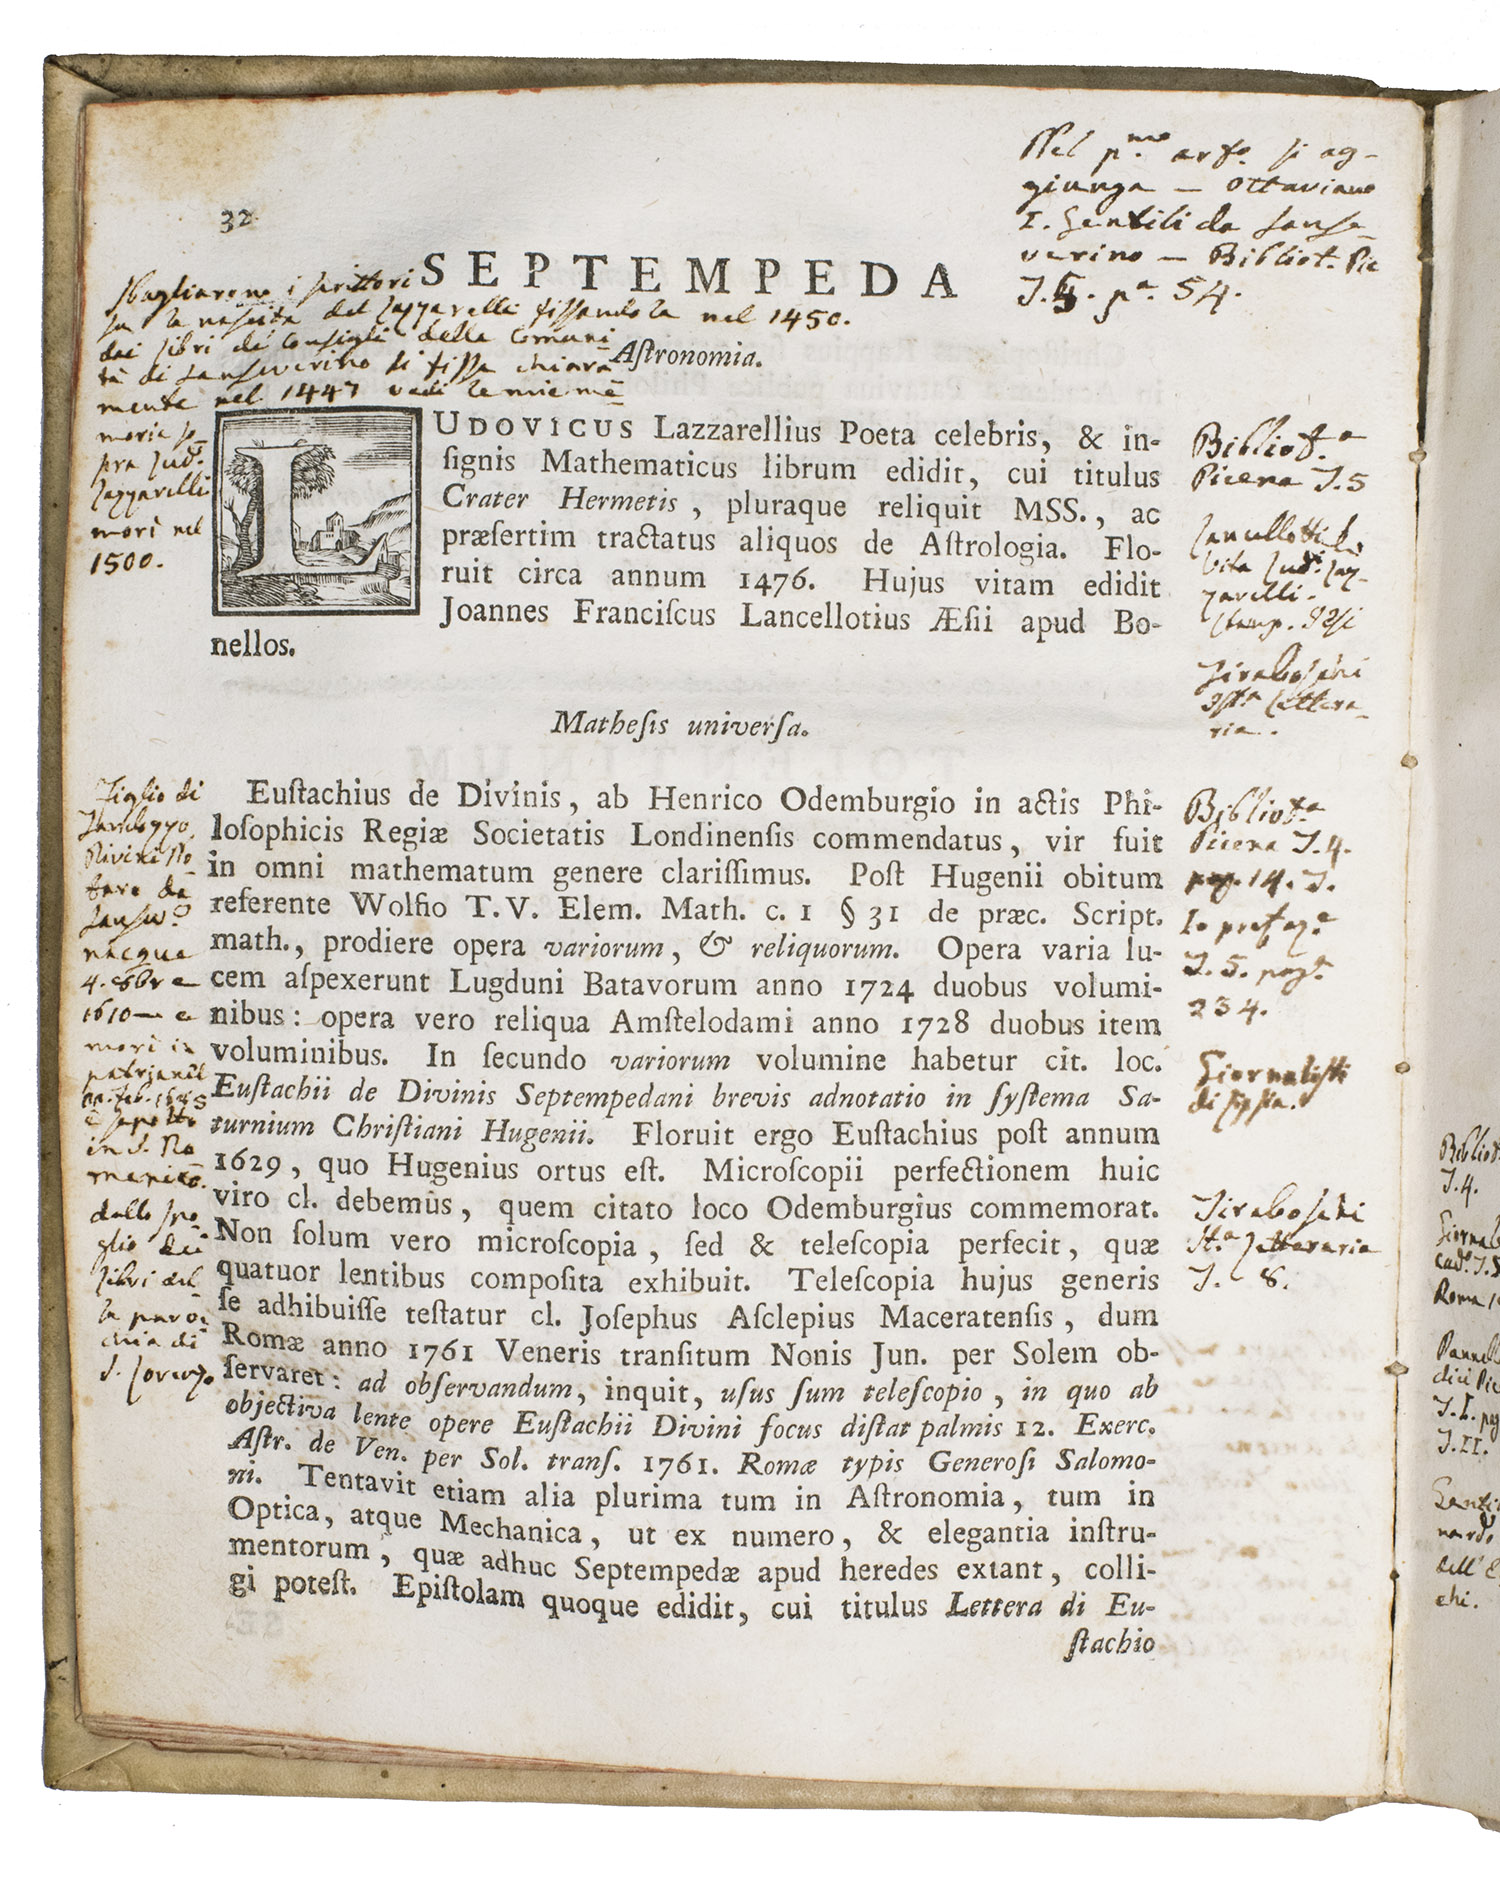 32
Nel p.mo arto. si ag-
giunga — Ottaviano
I. Gentili da Sanse-
verino — Bibliot. Pic
T. 5. pa. 54.
SEPTEMPEDA
Sbagliarono i scrittori
la nascita del Lazzarelli fissandola nel 1450.
dai libri de' Consigli della Comuni
tà di Sanseverino si fissa chiara
mente nel 1447 vedi le mie me
morie so-
pra Lud.
Lazzarelli
morì nel
1500.
Aſtronomia.
LUDOVICUS Lazzarellius Poeta celebris, & in-
ſignis Mathematicus librum edidit, cui titulus
Crater Hermetis, pluraque reliquit MSS., ac
præſertim tractatus aliquos de Aſtrologia. Flo-
ruit circa annum 1476. Hujus vitam edidit
Joannes Franciſcus Lancellotius Æſii apud Bo-
nellos.
Bibliot.a
Picena T. 5
Lancellotti
vita Lud. Laz-
zarelli.
stamp. Jesi
Tiraboschi
Ist.a Lettera-
ria.
Matheſis univerſa.
Figlio di
Tardozzo
Divini No
taro da
Sansev.o
nacque
4. 8bre
1610 — e
morì in
patria nel
Feb.
è sepolto
in S. Ro
dallo spo
glio dei
libri del
la paroc
chia di
S. Lorenzo
Euſtachius de Divinis, ab Henrico Odemburgio in actis Phi-
loſophicis Regiæ Societatis Londinenſis commendatus, vir fuit
in omni mathematum genere clariſſimus. Poſt Hugenii obitum
referente Wolfio T. V. Elem. Math. c. 1 § 31 de præc. Script.
math., prodiere opera variorum, & reliquorum. Opera varia lu-
cem aſpexerunt Lugduni Batavorum anno 1724 duobus volumi-
nibus: opera vero reliqua Amſtelodami anno 1728 duobus item
voluminibus. In ſecundo variorum volumine habetur cit. loc.
Euſtachii de Divinis Septempedani brevis adnotatio in ſyſtema Sa-
turnium Chriſtiani Hugenii. Floruit ergo Euſtachius poſt annum
1629, quo Hugenius ortus eſt. Microſcopii perfectionem huic
viro cl. debemus, quem citato loco Odemburgius commemorat.
Non ſolum vero microſcopia, ſed & teleſcopia perfecit, quæ
quatuor lentibus compoſita exhibuit. Teleſcopia hujus generis
ſe adhibuiſſe teſtatur cl. Joſephus Aſclepius Maceratenſis, dum
Romæ anno 1761 Veneris tranſitum Nonis Jun. per Solem ob-
ſervaret: ad obſervandum, inquit, uſus ſum teleſcopio, in quo ab
objectiva lente opere Euſtachii Divini focus diſtat palmis 12. Exerc.
Aſtr. de Ven. per Sol. tranſ. 1761. Romæ typis Generoſi Salomo-
ni. Tentavit etiam alia plurima tum in Aſtronomia, tum in
Optica, atque Mechanica, ut ex numero, & elegantia inſtru-
mentorum, quæ adhuc Septempedæ apud heredes extant, colli-
gi poteſt. Epiſtolam quoque edidit, cui titulus Lettera di Eu-
ſtachio
Bibliot.a
Picena T. 4.
pag. 14. T.
la prefaz.e
T. 5. pag.
234.
Giornalisti
Tiraboschi
St.a Letteraria
T. 8.
Bibliot.
T. 4.
Roma
T. I. pag
T. II.
dell'
chi.